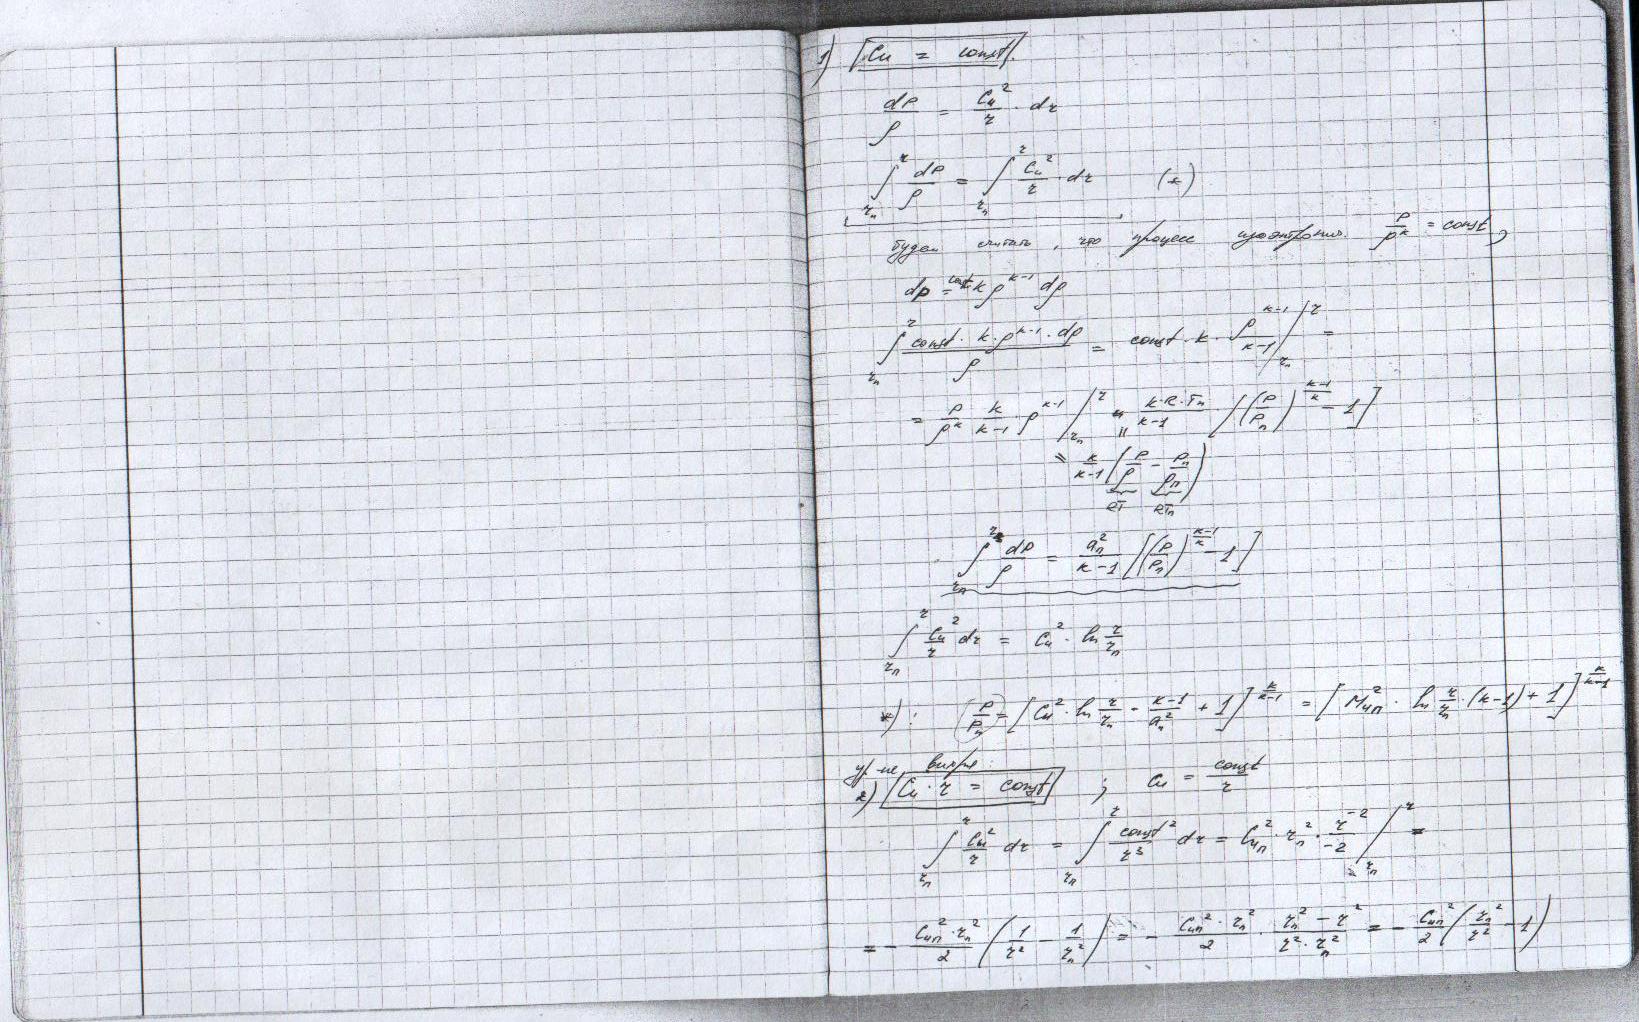 1) Cu = const.
dp/ρ = Cu²/r · dr
∫_{rп}^{r} dp/ρ = ∫_{rп}^{r} Cu²/r · dr (*)
будем считать, что процесс изоэнтропич. p/ρ^k = const,
dp = const k ρ^{k-1} dρ
∫_{rп}^{r} (const · k · ρ^{k-1} · dρ)/ρ = const · k · ρ^{k-1}/(k-1) |_{rп}^{r} =
= p/ρ^k · k/(k-1) · ρ^{k-1} |_{rп}^{r} = (k·R·Tп)/(k-1) [(p/pп)^{(k-1)/k} - 1]
= k/(k-1) (p/ρ - pп/ρп)
RT RTп
∫_{rп}^{r} dp/ρ = aп²/(k-1) [(p/pп)^{(k-1)/k} - 1]
∫_{rп}^{r} Cu²/r dr = Cu² · ln r/rп
*): p/pп = [Cu² · ln r/rп · (k-1)/aп² + 1]^{k/(k-1)} = [Muп² · ln r/rп · (k-1) + 1]^{k/(k-1)}
ур-ие вихря:
2) Cu · r = const ; Cu = const/r
∫_{rп}^{r} Cu²/r dr = ∫_{rп}^{r} const²/r³ dr = Cuп² · rп² · r^{-2}/-2 |_{rп}^{r} =
= - (Cuп² · rп²)/2 (1/r² - 1/rп²) = - (Cuп² · rп²)/2 · (rп² - r²)/(r² · rп²) = - Cuп²/2 (rп²/r² - 1)